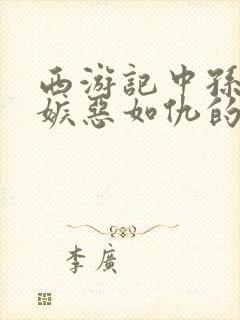 西游記中孫
嫉惡如仇的
李廣